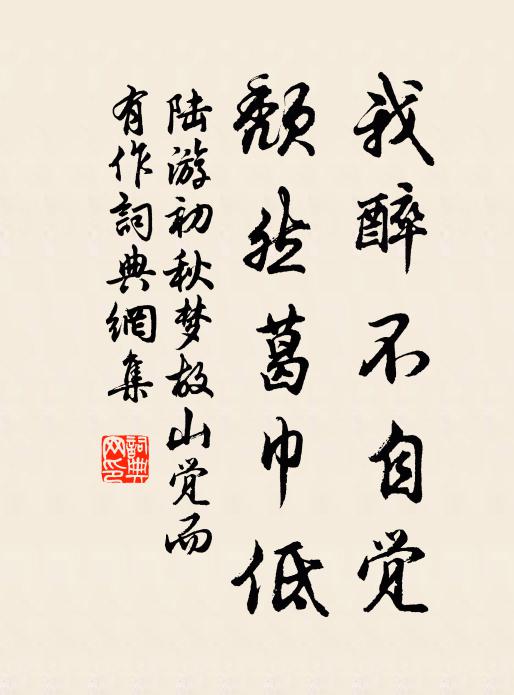 我醉不自觉
颓然葛巾低
陆游初秋梦故山觉而
有作詞典網集
詞典
网印